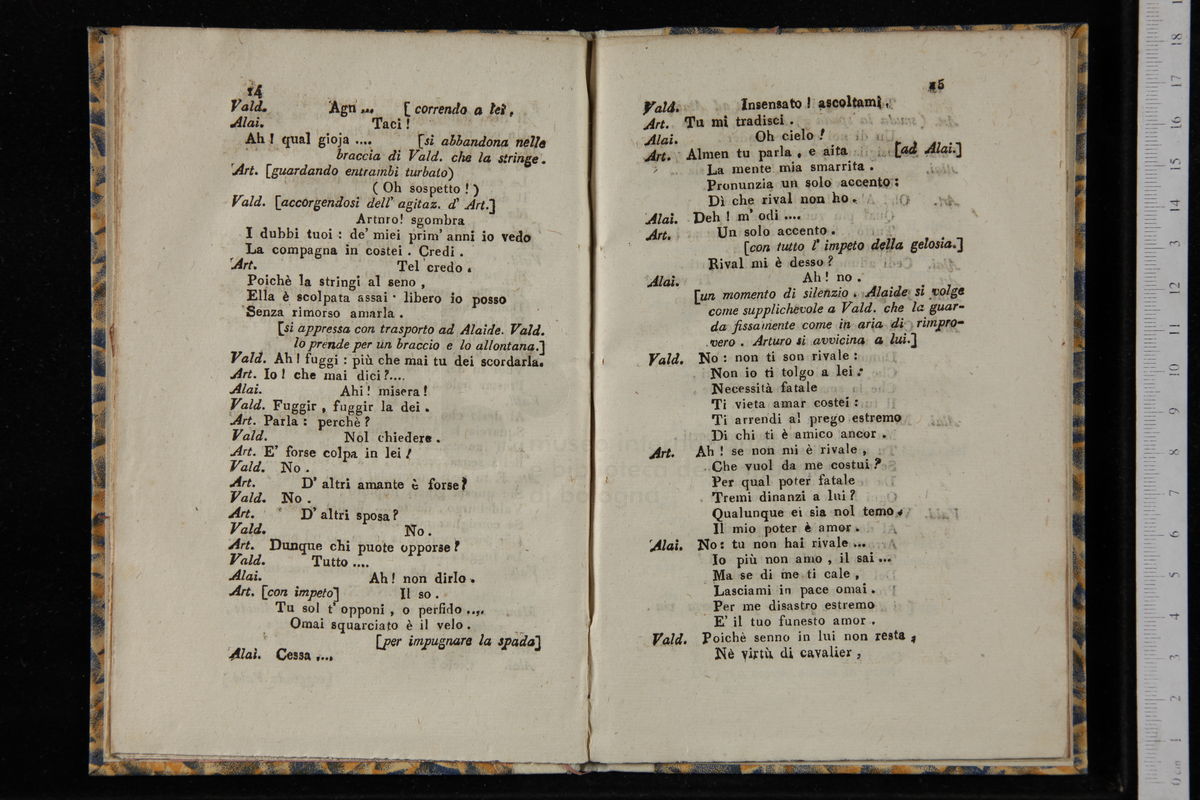 14
Vald. Agn ... [ correndo a lei,
Alai. Taci !
Ah ! qual gioja .... [si abbandona nelle
braccia di Vald. che la stringe.
Art. [guardando entrambi turbato)
( Oh sospetto ! )
Vald. [accorgendosi dell' agitaz. d' Art.]
Artnro! sgombra
I dubbi tuoi : de' miei prim' anni io vedo
La compagna in costei . Credi .
Art. Tel credo .
Poichè la stringi al seno ,
Ella è scolpata assai · libero io posso
Senza rimorso amarla .
[si appressa con trasporto ad Alaide. Vald.
lo prende per un braccio e lo allontana.]
Vald. Ah ! fuggi : più che mai tu dei scordarla.
Art. Io ! che mai dici ?....
Alai. Ahi ! misera !
Vald. Fuggir , fuggir la dei .
Art. Parla : perchè ?
Vald. Nol chiedere .
Art. E' forse colpa in lei !
Vald. No .
Art. D' altri amante è forse?
Vald. No .
Art. D' altri sposa ?
Vald. No .
Art. Dunque chi puote opporse ?
Vald. Tutto ....
Alai. Ah ! non dirlo .
Art. [con impeto] Il so .
Tu sol t' opponi , o perfido ....
Omai squarciato è il velo .
[per impugnare la spada]
Alai. Cessa ....
15
Vald. Insensato ! ascoltami .
Art. Tu mi tradisci .
Alai. Oh cielo !
Art. Almen tu parla , e aita [ad Alai.]
La mente mia smarrita .
Pronunzia un solo accento :
Dì che rival non ho .
Alai. Deh ! m' odi ....
Art. Un solo accento .
[con tutto l' impeto della gelosia.]
Rival mi è desso ?
Alai. Ah ! no .
[un momento di silenzio . Alaide si volge
come supplichevole a Vald. che la guar-
da fissamente come in aria di rimpro-
vero . Arturo si avvicina a lui.]
Vald. No : non ti son rivale :
Non io ti tolgo a lei :
Necessità fatale
Ti vieta amar costei :
Ti arrendi al prego estremo
Di chi ti è amico ancor .
Art. Ah ! se non mi è rivale ,
Che vuol da me costui ?
Per qual poter fatale
Tremi dinanzi a lui ?
Qualunque ei sia nol temo .
Il mio poter è amor .
Alai. No : tu non hai rivale ...
Io più non amo , il sai ...
Ma se di me ti cale ,
Lasciami in pace omai .
Per me disastro estremo
E' il tuo funesto amor .
Vald. Poichè senno in lui non resta ,
Nè virtù di cavalier ,